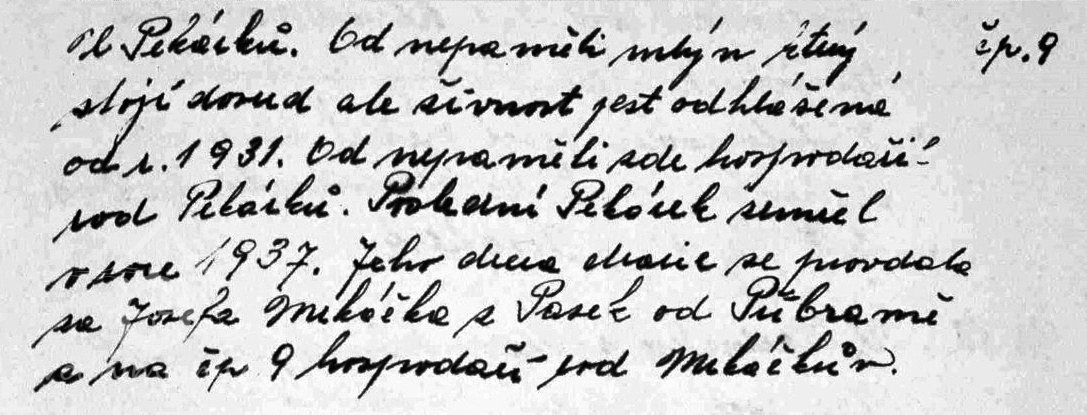 U Pekárků. Od nepaměti mlýn žitný čp. 9
stojí dosud ale živnost jest odhlášená
od r. 1931. Od nepaměti zde hospodaří
rod Pekárků. Poslední Pekárek zemřel
v roce 1937. Jeho dcera Marie se provdala
za Josefa Mukáčka z Pasek od Příbramě
a na čp 9 hospodaří rod Mukáčkův.